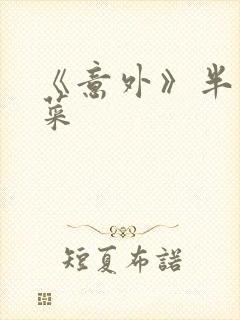 《意外》半
菜
短夏布諾